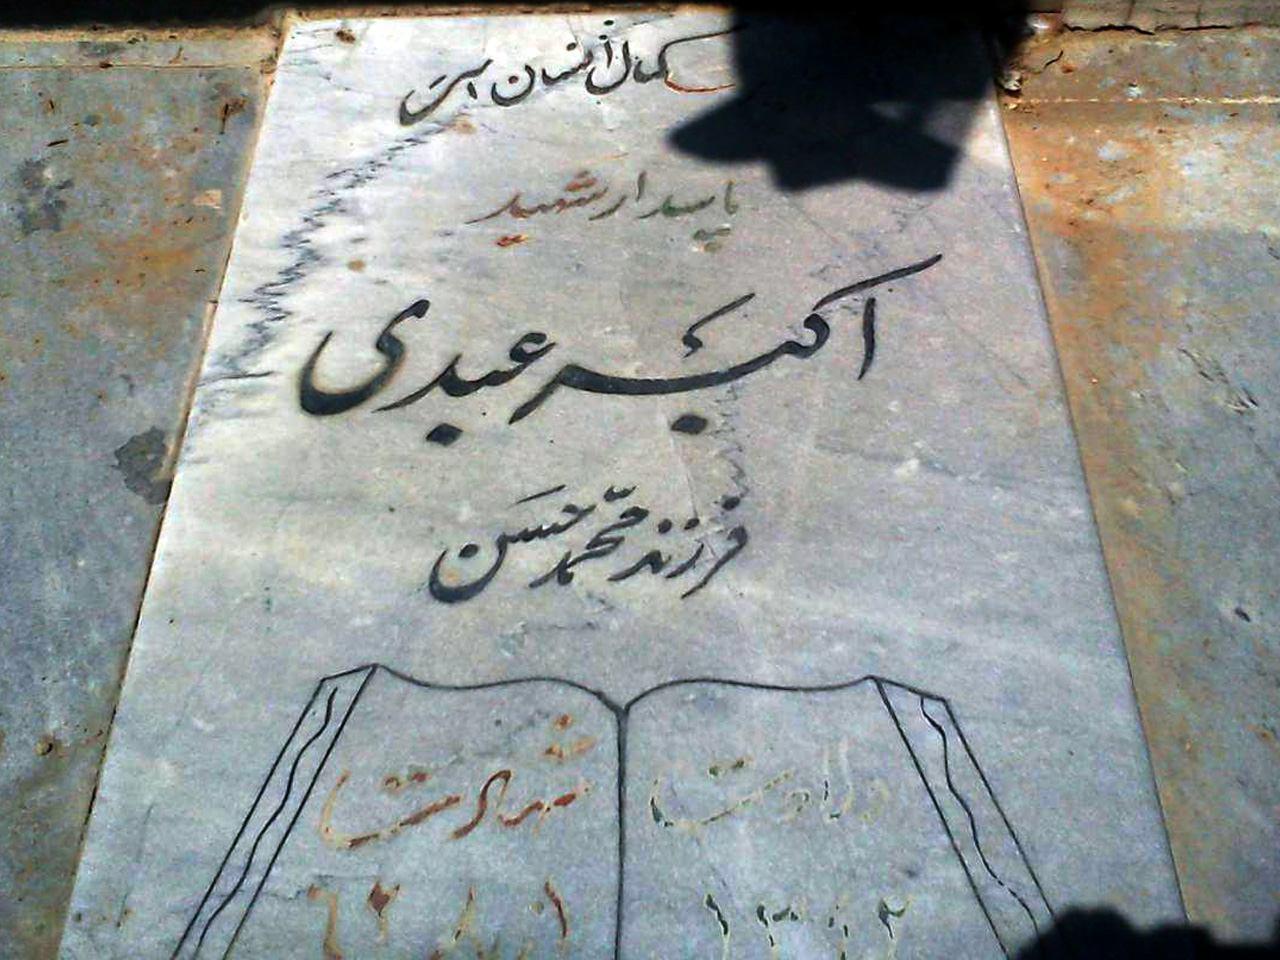 کمال انسان است
پاسدار شهید
اکبر عبدی
فرزند محمد حسن
ولادت
شهادت